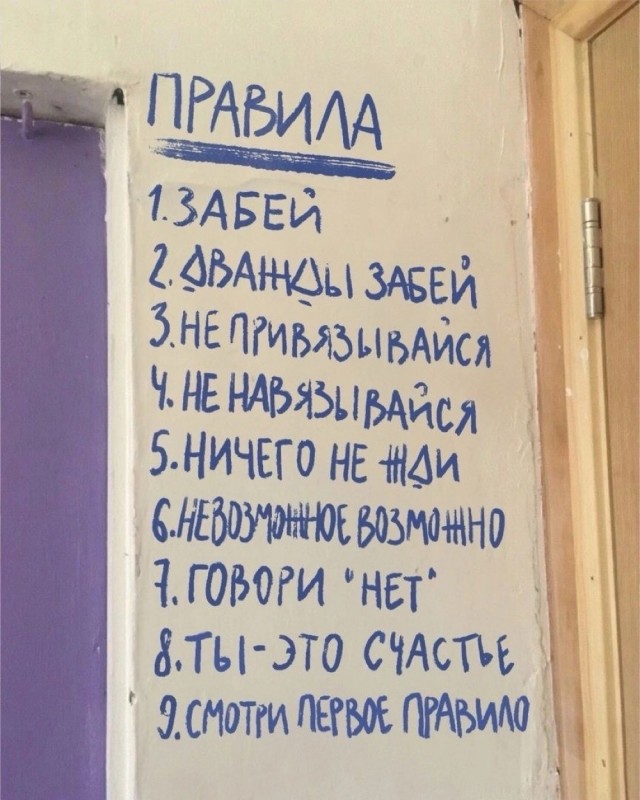 ПРАВИЛА
1. ЗАБЕЙ
2. ДВАЖДЫ ЗАБЕЙ
3. НЕ ПРИВЯЗЫВАЙСЯ
4. НЕ НАВЯЗЫВАЙСЯ
5. НИЧЕГО НЕ ЖДИ
6. НЕВОЗМОЖНОЕ ВОЗМОЖНО
7. ГОВОРИ "НЕТ"
8. ТЫ - ЭТО СЧАСТЬЕ
9. СМОТРИ ПЕРВОЕ ПРАВИЛО